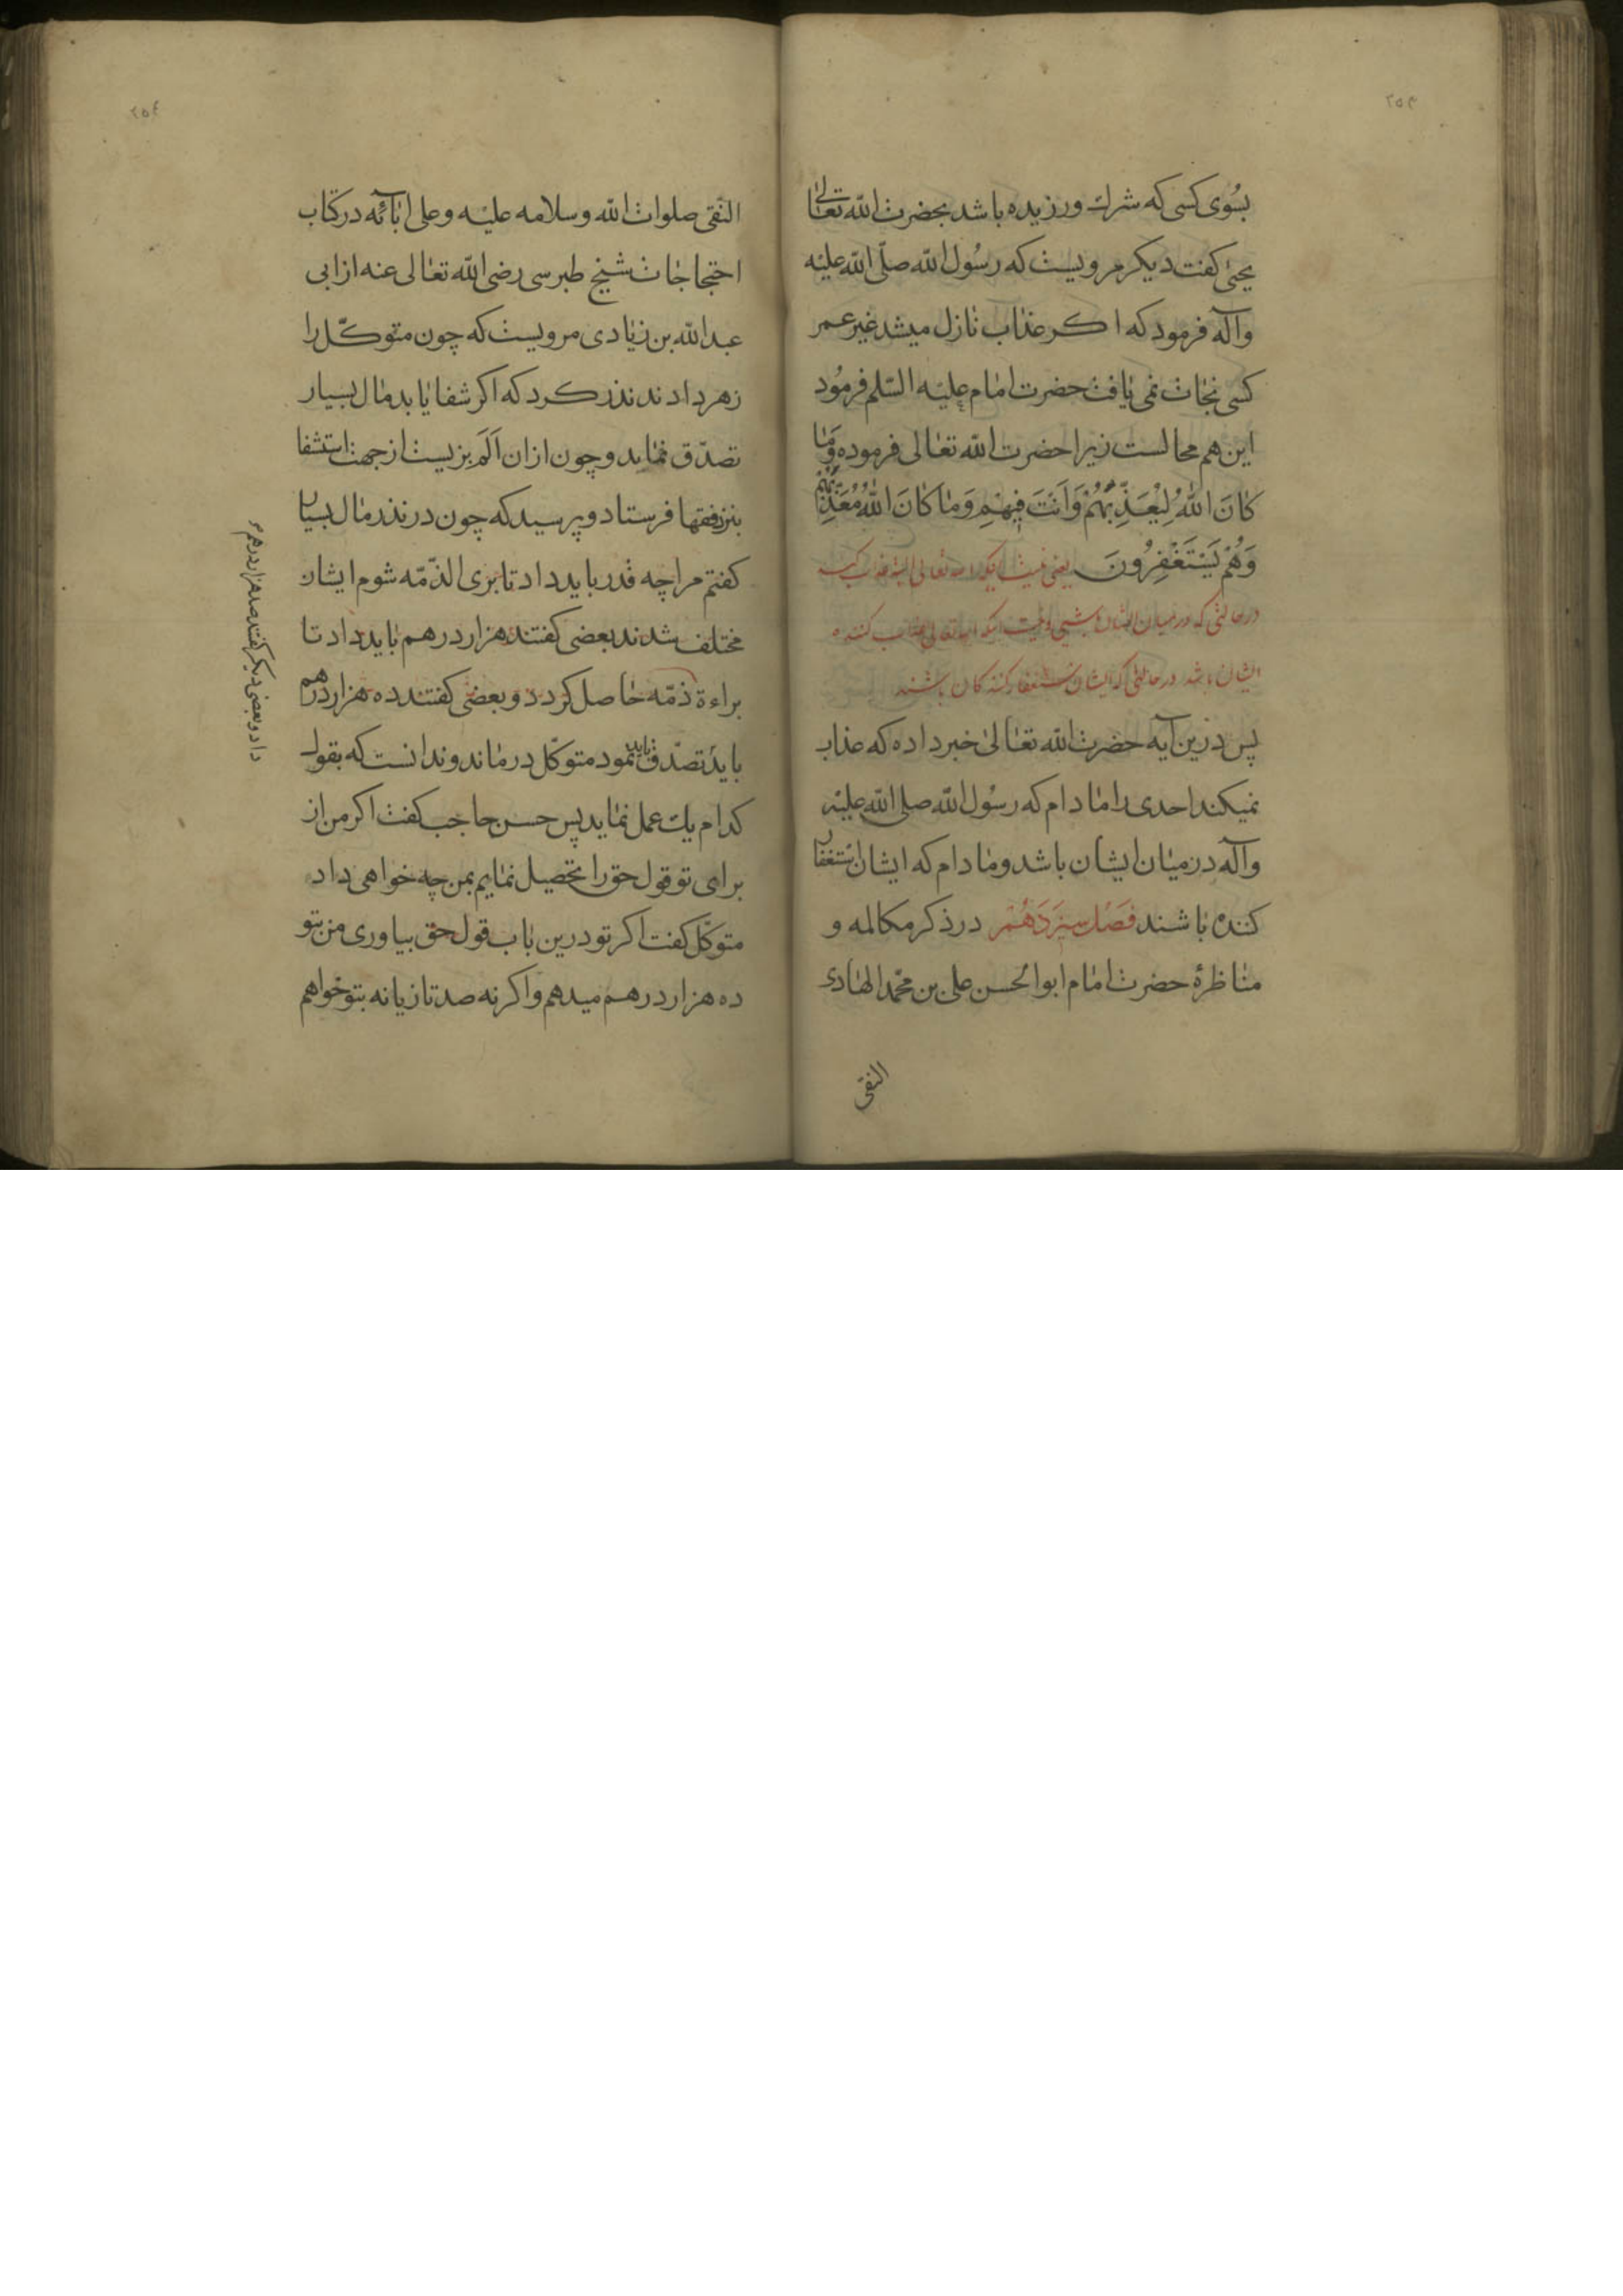 ۲۵۳
بسُوی کسی که شرك ورزیده باشد بحضرت الله تعالیٰ
یحیی کفت دیکر مرویست که رسُول الله صلّی الله علیه
وآله فرمود که اکر عذاب نازل میشد غیر عمر
کسی نجات نمی یافت حضرت امام علیه السّلم فرمُود
این هم محالست زیرا حضرت الله تعالی فرموده وَمَا
كَانَ اللهُ لِيُعَذِّبَهُمْ وَاَنْتَ فِيهِمْ وَمَا كَانَ اللهُ مُعَذِّبَهُمْ
وَهُمْ يَسْتَغْفِرُونَ یعنی نیست اینکه الله تعالی البته عذاب کند
در حالتی که در میان ایشان باشی و نیست اینکه الله تعالی عذاب کننده
ایشان باشد در حالتی که ایشان استغفار کنندکان باشند
پس درین آیه حضرت الله تعالیٰ خبر داده که عذاب
نمیکند احدی را مادام که رسُول الله صلی الله علیه
وآله در میان ایشان باشد ومادام که ایشان استغفار
کننده باشند فَصْل سِیزْدَهُمْ در ذکر مکالمه و
مناظرۀ حضرت امام ابوالحسن علی بن محمّد الهادی
النقی
۲۵٤
النّقی صلوات الله وسلامه علیه وعلی آبائه در کتاب
احتجاجات شیخ طبرسی رضی الله تعالی عنه از ابی
عبدالله بن زیادی مرویست که چون متوکّل را
زهر دادند نذر کرد که اکر شفا یابد مال بسیار
تصدّق نماید وچون از ان اَلَم بزیست از جهت استشفا
بنزد فقها فرستاد و پرسید که چون در نذر مال بسیار
کفتم مرا چه قدر باید داد تا بری الذّمّه شوم ایشان
مختلف شدند بعضی کفتند هزار درهم باید داد تا
براءة ذمّه حاصل کردد و بعضی کفتند ده هزار درهم
باید تصدّق باید نمود متوکّل درماند وندانست که بقول
کدام یك عمل نماید پس حسن حاجب کفت اکر من از
برای تو قول حق را تحصیل نمایم بمن چه خواهی داد
متوکّل کفت اکر تو درین باب قول حق بیاوری من بتو
ده هزار درهم میدهم واکرنه صد تازیانه بتو خواهم
داد و بعضی دیکر کفتند صد هزار درهم